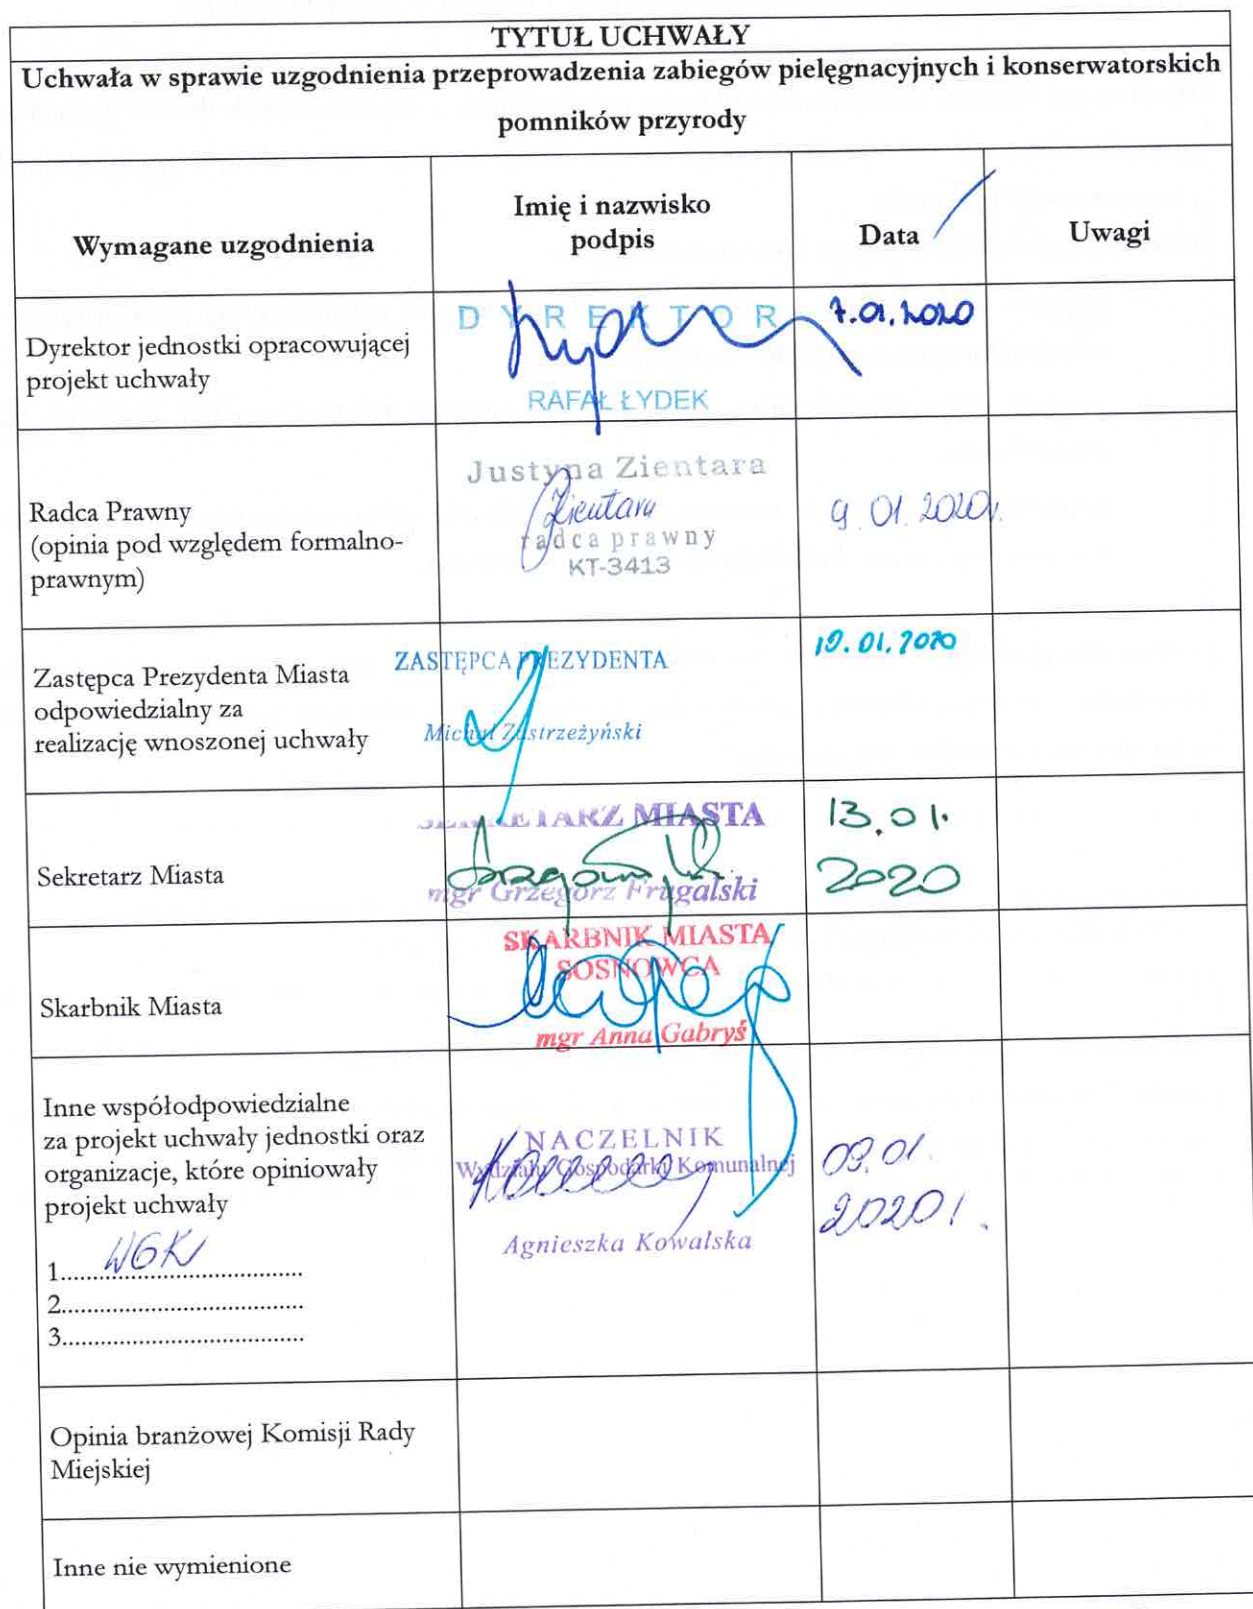 TYTUŁ UCHWAŁY
Uchwała w sprawie uzgodnienia przeprowadzenia zabiegów pielęgnacyjnych i konserwatorskich
pomników przyrody
Wymagane uzgodnienia
Imię i nazwisko
podpis
Data
Uwagi
Dyrektor jednostki opracowującej
projekt uchwały
DYREKTOR
RAFAŁ ŁYDEK
7.01.2020
Radca Prawny
(opinia pod względem formalno-
prawnym)
Justyna Zientara
Zientara
radca prawny
KT-3413
9.01.2020r.
Zastępca Prezydenta Miasta
odpowiedzialny za
realizację wnoszonej uchwały
ZASTĘPCA PREZYDENTA
Michał Zastrzeżyński
.01.2020
Sekretarz Miasta
SEKRETARZ MIASTA
mgr Grzegorz Frugalski
13.01.
2020
Skarbnik Miasta
SKARBNIK MIASTA
SOSNOWCA
mgr Anna Gabryś
Inne współodpowiedzialne
za projekt uchwały jednostki oraz
organizacje, które opiniowały
projekt uchwały
1. WGK
2.
3.
NACZELNIK
Wydziału Gospodarki Komunalnej
Agnieszka Kowalska
09.01.
2020r.
Opinia branżowej Komisji Rady
Miejskiej
Inne nie wymienione